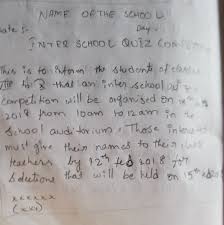 NAME OF THE SCHOOL
ate :- Day:-
INTER SCHOOL QUIZ COM
This is to inform the students of classes
VIII to X that an inter school
Competition will be organised on
2018 from 10am to 12am in the
School auditorium. Those interes
must give their names to their class
teachers by 12th feb 2018 for
Selections that will be held on 15th
xxxxxx
(xxx)